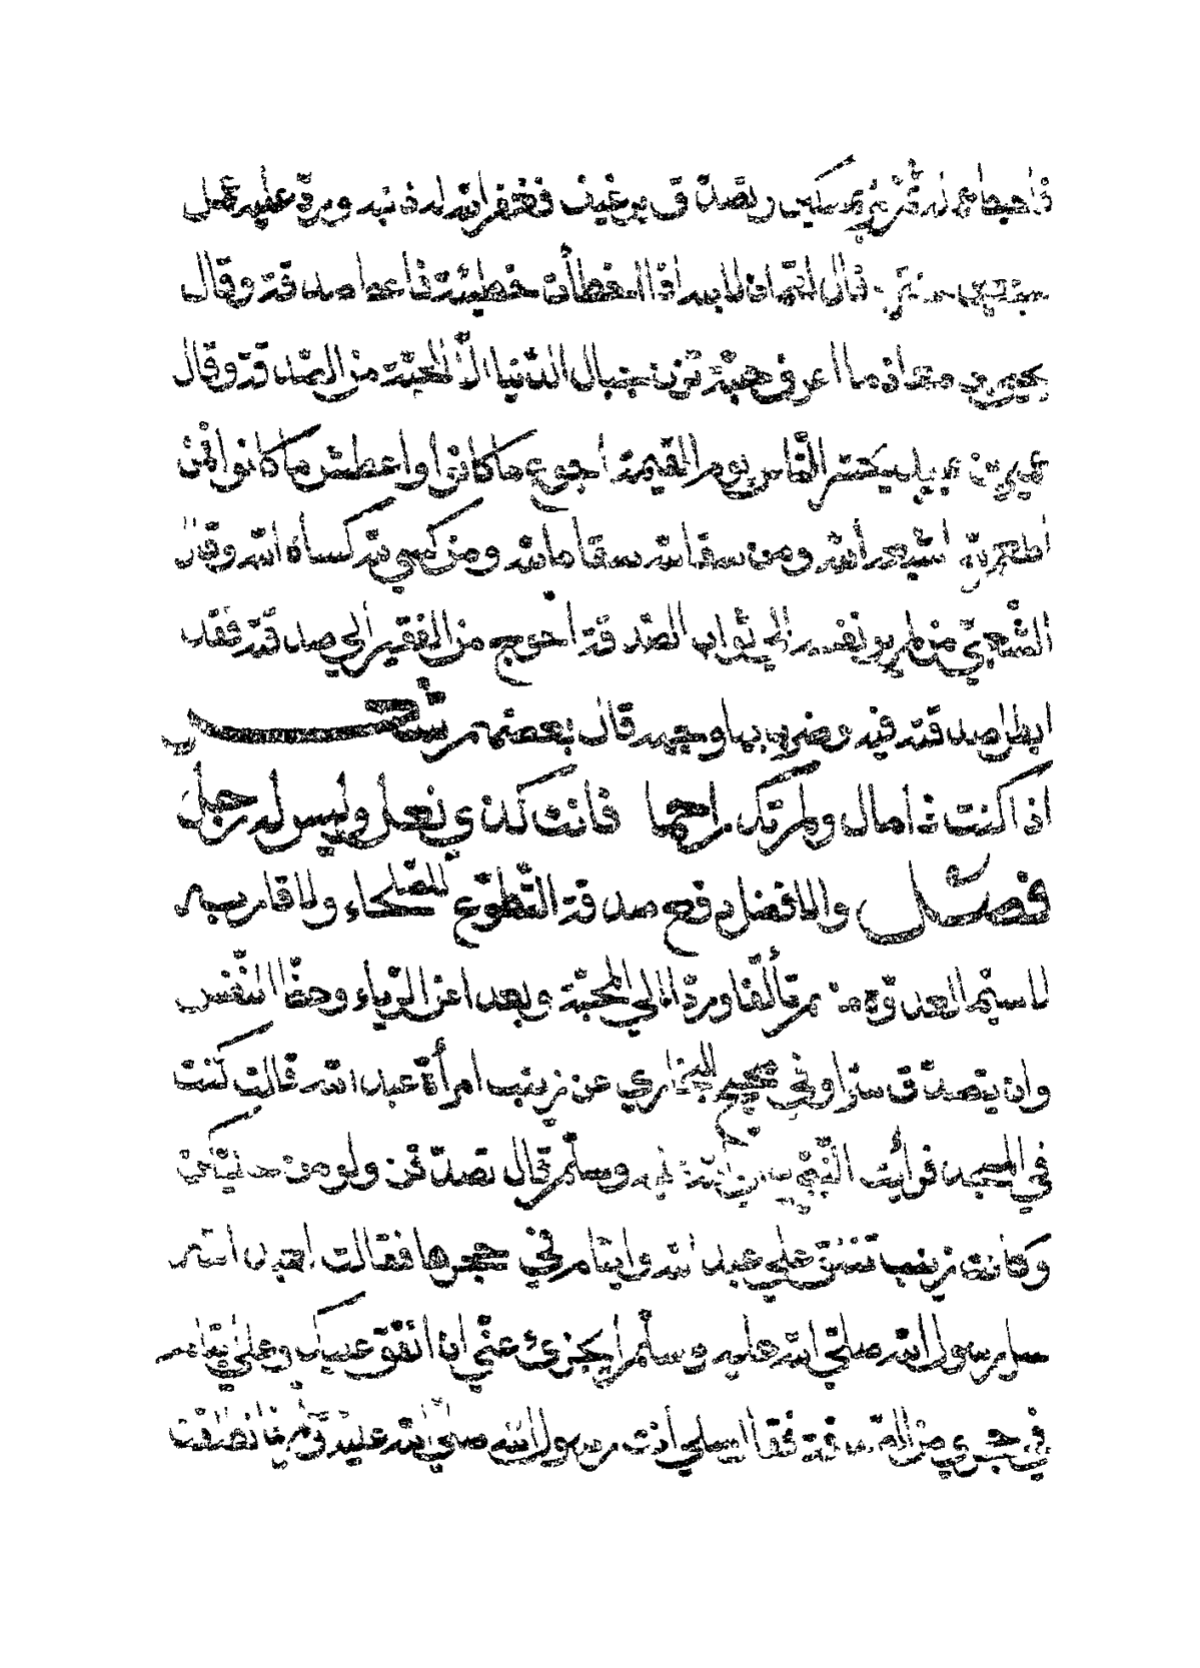 فاحبط عمله ثم مر بمسكين وتصدق برغيف فغفر الله له ذنبه ورد عليه عمل
سبعين سنة قال لقمان لابنه اذا اخطأت خطيئة فاعط صدقة وقال
يحيى بن معاذ ما اعرف حبة تزن جبال الدنيا الا الحبة من الصدقة وقال
عبيد بن عمير يحشر الناس يوم القيمة اجوع ما كانوا واعطش ما كانوا فمن
اطعم لله اشبعه الله ومن سقا لله سقاه الله ومن كسي لله كساه الله وقال
الشعبي من لم ير نفسه الي ثواب الصدقة احوج من الفقير الي صدقته فقد
ابطل صدقته فيه وضرب بها وجهه قال بعضهم شعر
اذا كنت ذا مال ولم تك راحما فانت كذي نعل وليس له رجل
فصل والافضل دفع صدقة التطوع للصلحاء ولاقاربه
لا سيما العدو منهم تألفا وردا الي المحبة وبعدا عن الرياء وحظ النفس
وان يتصدق سرا وفي صحيح البخاري عن زينب امرأة عبد الله قالت كنت
في المسجد فرأيت النبي صلى الله عليه وسلم قال تصدقن ولو من حليكن
وكانت زينب تنفق علي عبد الله وايتام في حجرها فقالت لعبد الله
سل رسول الله صلي الله عليه وسلم ايجزئ عني ان انفق عليك وعلي ايتام
في حجري من الصدقة فقال سلي انت رسول الله صلي الله عليه وسلم فانطلقت